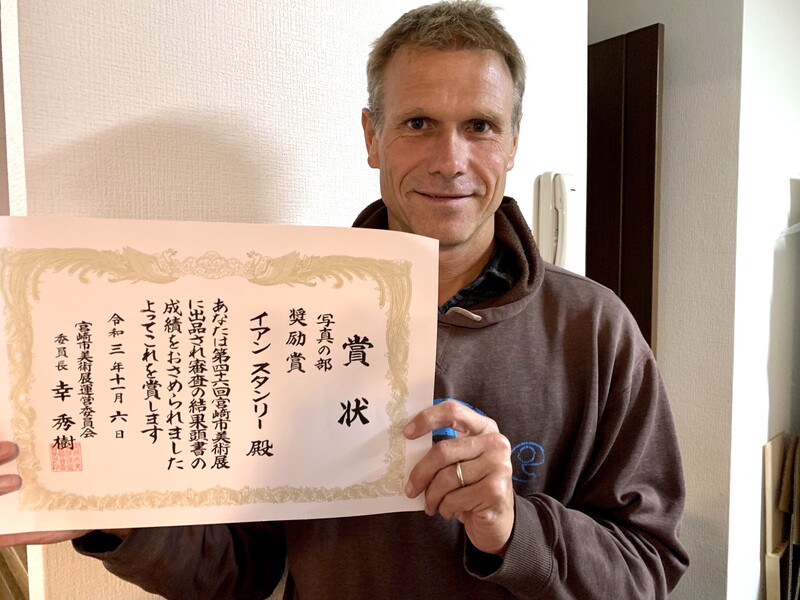 賞状
写真の部
奨励賞
イアン スタンリー 殿
あなたは第四十六回宮崎市美術展
に出品され審査の結果頭書の
成績をおさめられました
よってこれを賞します
令和三年十一月六日
宮崎市美術展運営委員会
委員長 幸 秀樹